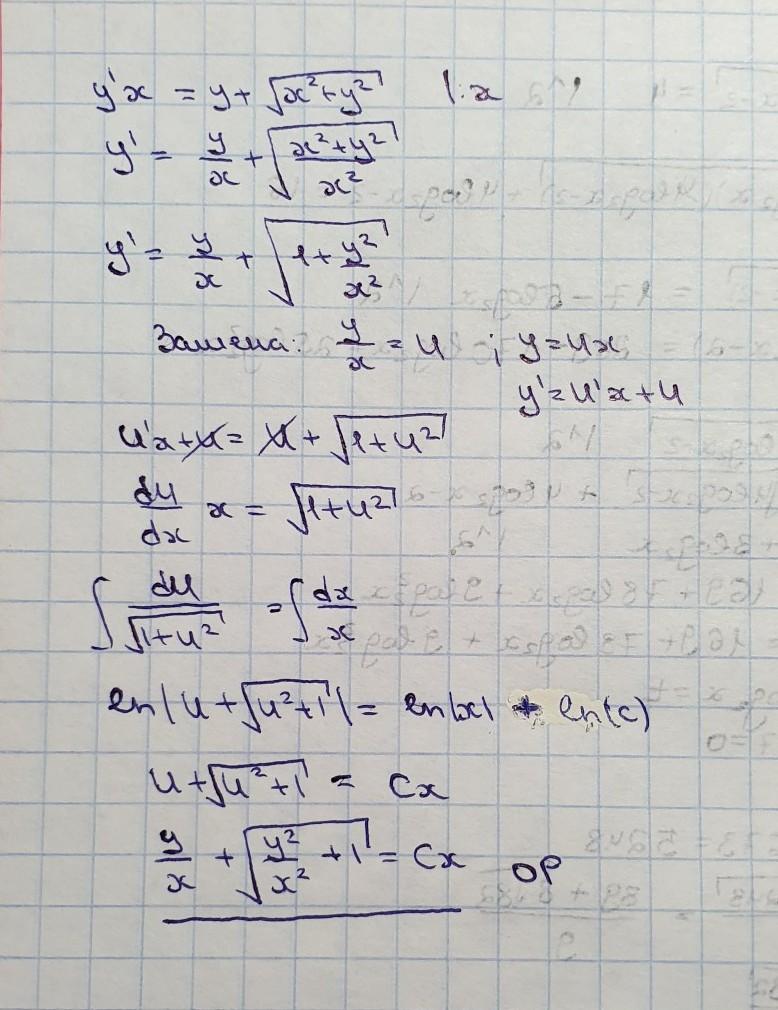 y'x = y + √(x²+y²) |:x
y' = y/x + √((x²+y²)/x²)
y' = y/x + √(1 + y²/x²)
Замена: y/x = u ; y=ux
y'=u'x+u
u'x+u = u + √(1+u²)
du/dx x = √(1+u²)
∫ du/√(1+u²) = ∫ dx/x
ln|u+√(u²+1)| = ln|x| + ln(c)
u+√(u²+1) = Cx
y/x + √(y²/x² + 1) = Cx ОР